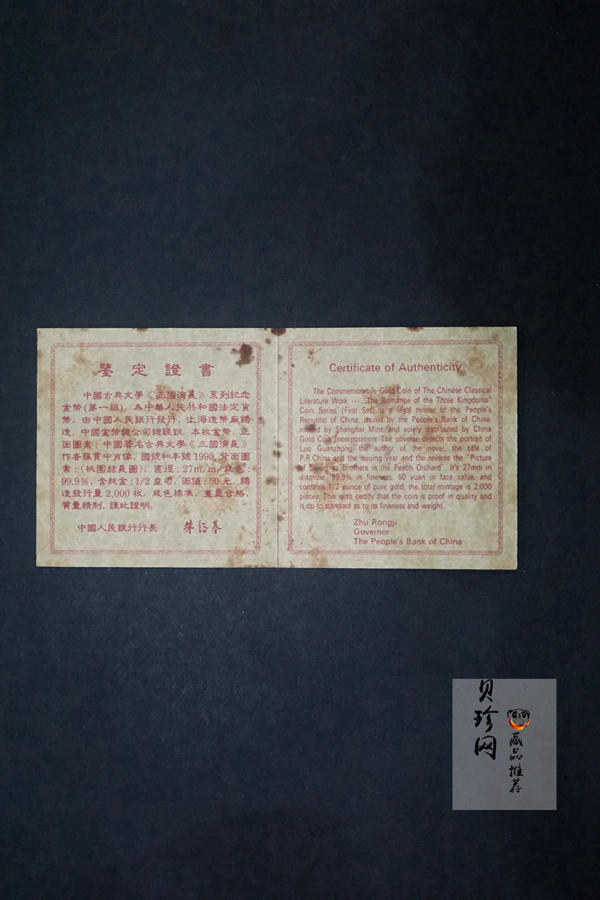 鑒定證書
中國古典文學《三國演義》系列紀念
金幣(第一組),為中華人民共和國法定貨
幣。由中國人民銀行發行,上海造幣廠鑄
造,中國金幣總公司總經銷。本枚金幣,正
面圖案:中國著名古典文學《三國演義》
作者羅貫中肖像,國號和年號1995,背面圖
案:《桃園結義圖》,直徑:27m/m,成色:
99.9%,含純金:1/2盎司,面值:50元,鑄
造發行量2,000枚。成色標準,重量合格,
質量精制。謹此證明。
中國人民銀行行長 朱鎔基
Certificate of Authenticity
The Commemorative Gold Coin of The Chinese Classical
Literature Work --- "The Romance of the Three Kingdoms"
Coin Series (First Set) is a legal tender of the People's
Republic of China, issued by the People's Bank of China,
minted by Shanghai Mint and solely distributed by China
Gold Coin Incorporation. The obverse depicts the portrait of
Luo Guanzhong, the author of the novel, the title of
P.R.China and the issuing year and the reverse the "Picture
of Swearing Brothers in the Peach Orchard". It's 27mm in
diameter, 99.9% in fineness, 50 yuan in face value, and
contains 1/2 ounce of pure gold, the total mintage is 2,000
pieces. This is to certify that the coin is proof in quality and
is up to standard as to its fineness and weight.
Zhu Rongji
Governor
The People's Bank of China
贝珍网
藏品推荐